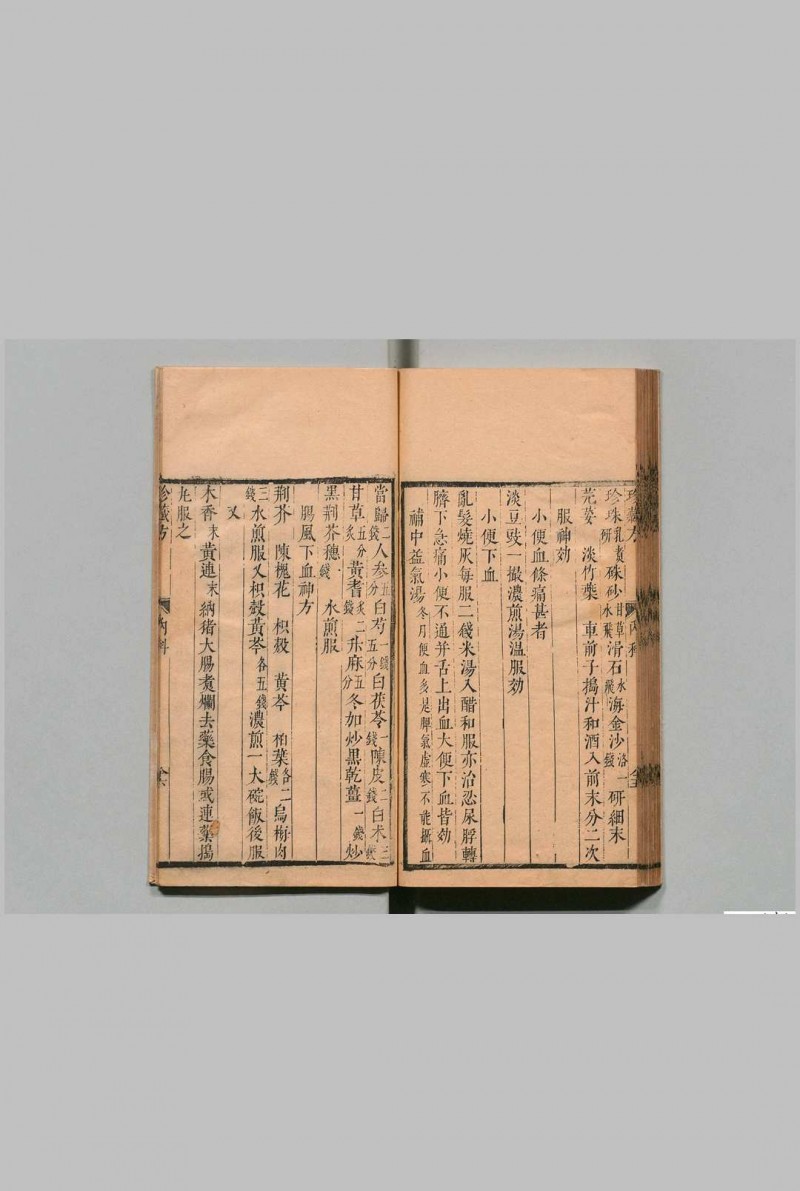 珍藏方 內科
珍珠乳研細硃砂甘草水飛滑石水飛海金沙各一錢研細末
芫荽 淡竹葉 車前子搗汁和酒入前末分二次
服神効
小便血條痛甚者
淡豆豉一撮濃煎湯温服効
小便下血
亂髮燒灰每服二錢米湯入醋和服亦治忍尿脬轉
臍下急痛小便不通并舌上出血大便下血皆効
補中益氣湯冬月便血多是脾氣虛寒不能攝血
當歸二錢人參五分白芍一錢五分白茯苓一錢陳皮二錢白术三錢
甘草五分炙黃耆二錢炙升麻五分冬加炒黑乾薑一錢炒
黑荆芥穗一錢 水煎服
腸風下血神方
荆芥 陳槐花 枳殼 黃芩 柏葉各二錢烏梅肉
三錢水煎服又枳殼黃芩各五錢濃煎一大碗飯後服
又
木香末黃連末納猪大腸煑爛去藥食腸或連藥搗
丸服之
珍藏方 內科